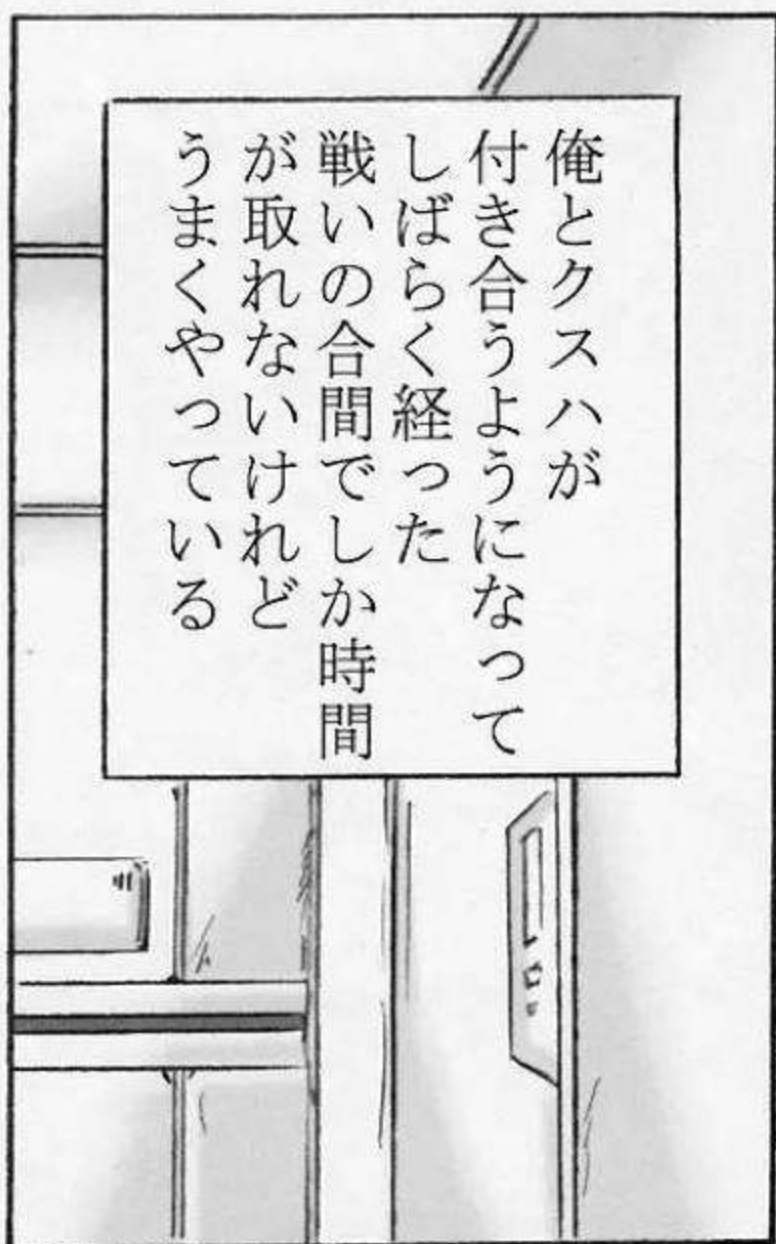 俺とクスハが
付き合うようになって
しばらく経った
戦いの合間でしか時間
が取れないけれど
うまくやっている